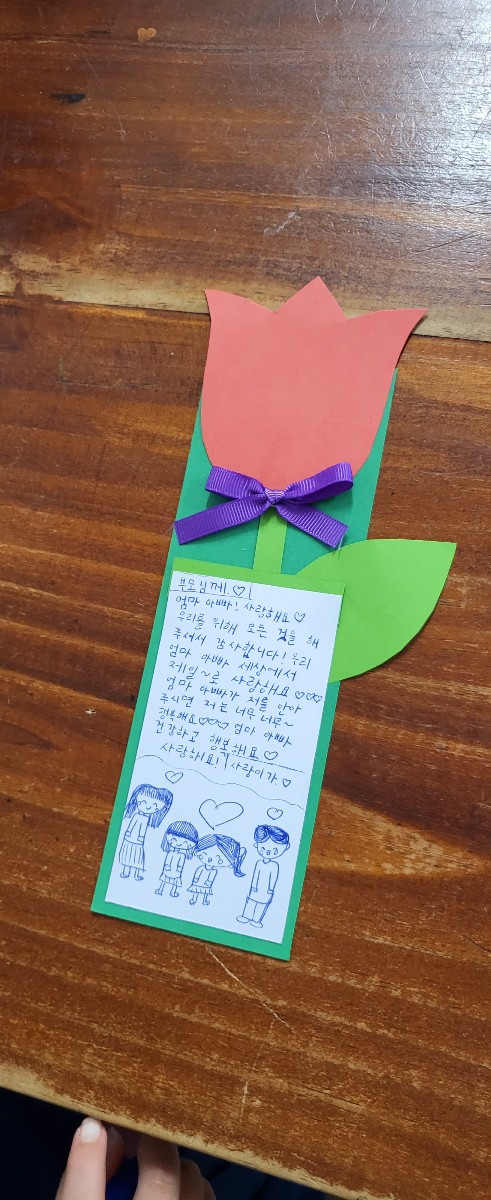 부모님께.♡
엄마 아빠! 사랑해요♡
우리를 위해 모든 것을 해
주셔서 감사합니다! 우리
엄마 아빠 세상에서
제일~로 사랑해요♡♡♡
엄마 아빠가 저를 안아
주시면 저는 너무너무~
행복해요♡♡♡ 엄마 아빠
건강하고 행복해요♡
사랑해요! 사랑이가.♡